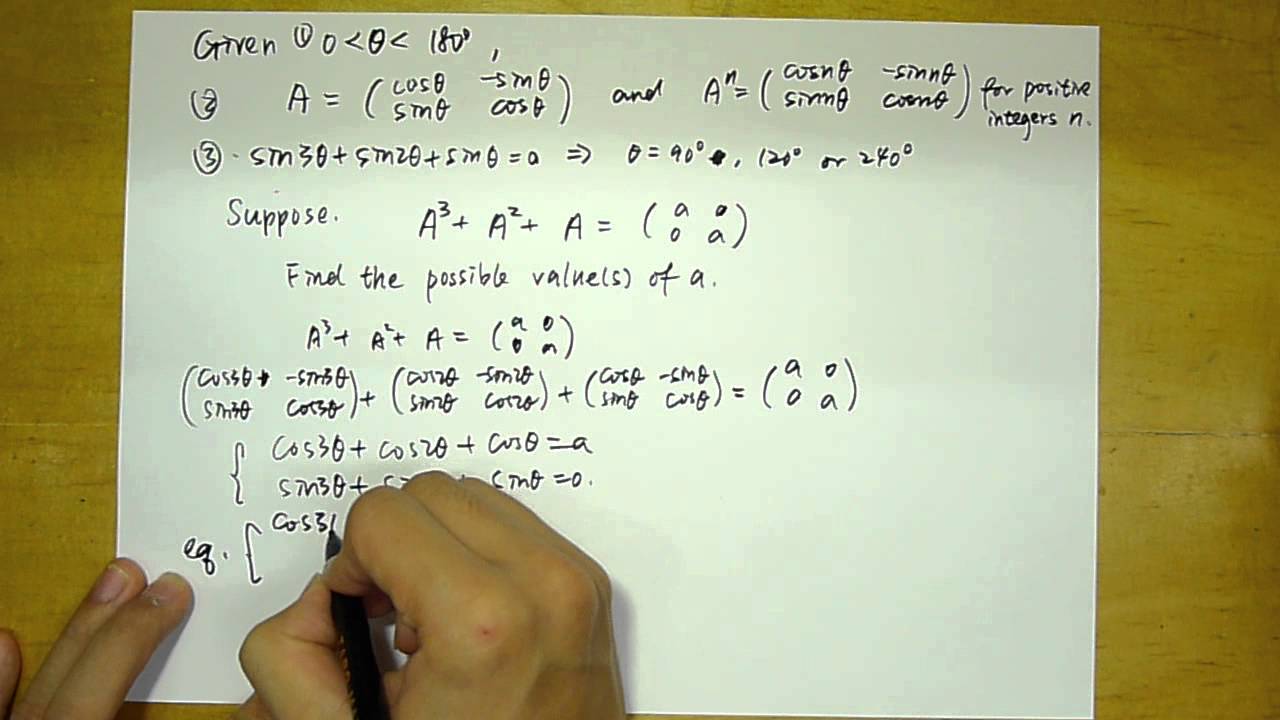 Given ① 0 < θ < 180°,
② A = (cosθ -sinθ sinθ cosθ) and Aⁿ = (cosnθ -sinnθ sinnθ cosnθ) for positive integers n.
③ sin3θ + sin2θ + sinθ = a ⇒ θ = 90°, 120° or 240°
Suppose. A³ + A² + A = (a 0 0 a)
Find the possible value(s) of a.
A³ + A² + A = (a 0 0 a)
(cos3θ -sin3θ sin3θ cos3θ) + (cos2θ -sin2θ sin2θ cos2θ) + (cosθ -sinθ sinθ cosθ) = (a 0 0 a)
{ cos3θ + cos2θ + cosθ = a
sin3θ + sinθ = 0.
eq. { cos3